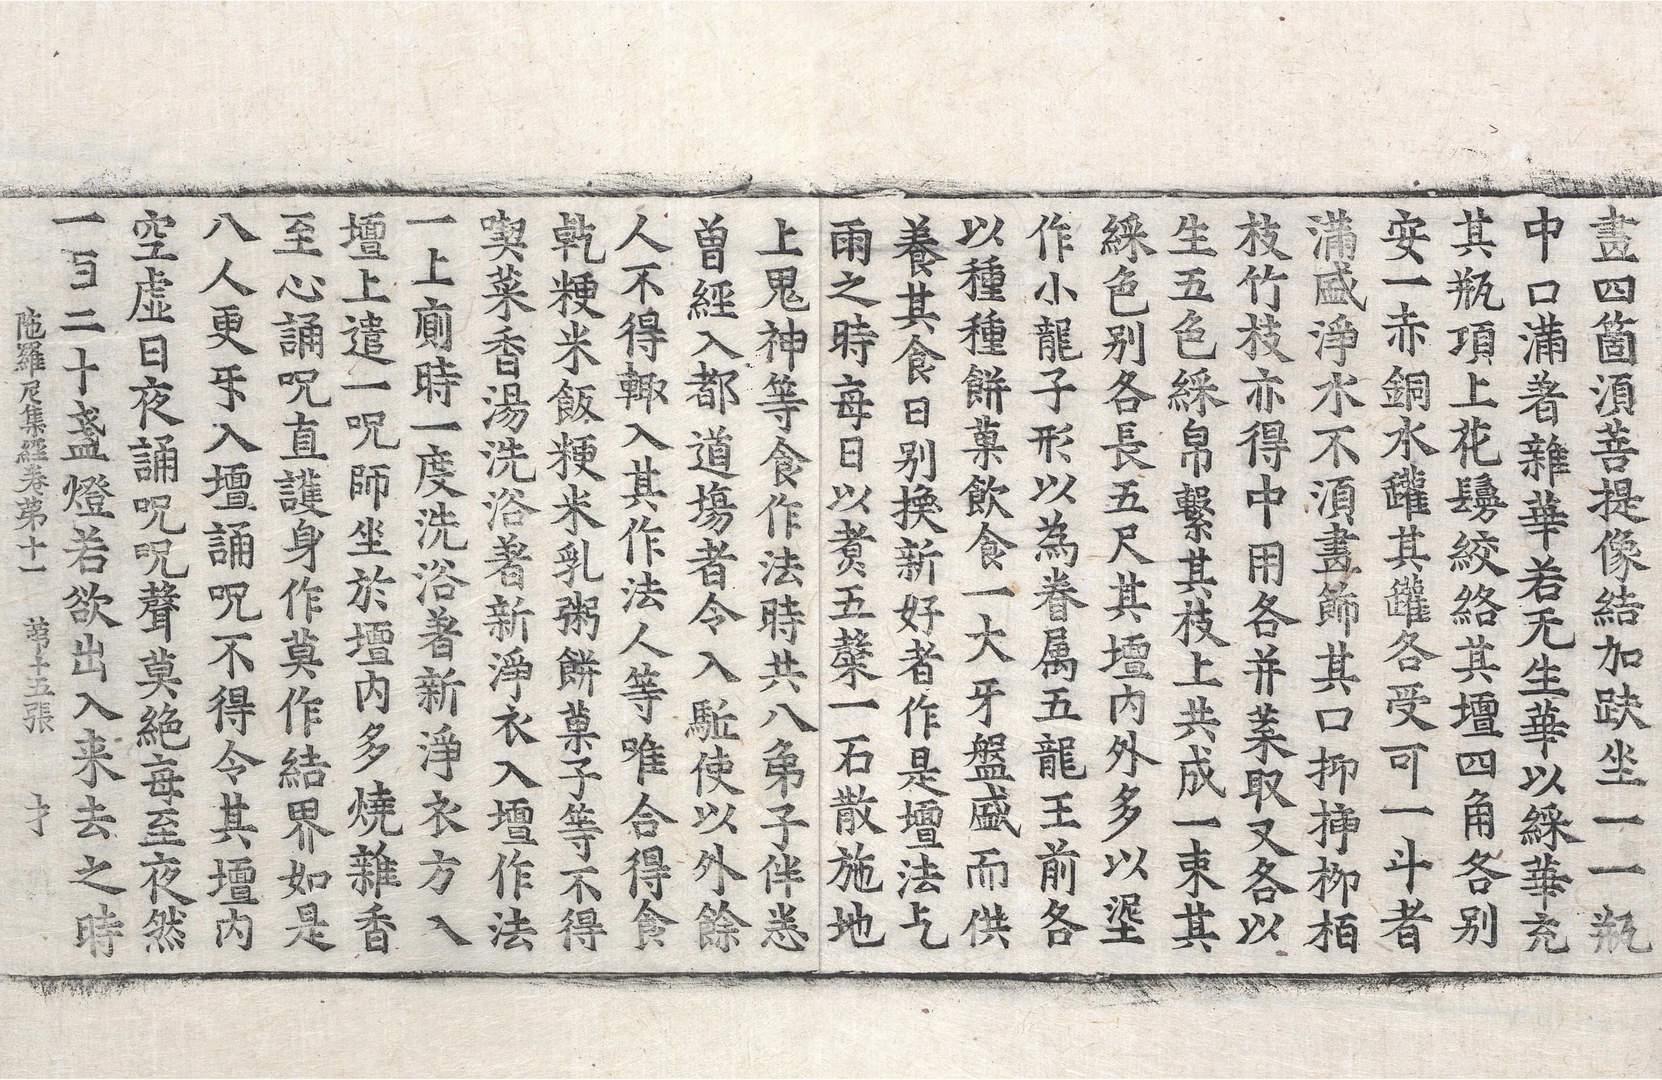 畫四箇須菩提像結加趺坐一一瓶
中口滿著雜華若无生華以綵華充
其瓶項上花鬘絞絡其壇四角各別
安一赤銅水罐其罐各受可一斗者
滿盛淨水不須畫飾其口抑揷柳栢
枝竹枝亦得中用各并葉取又各以
生五色綵帛繫其枝上共成一束其
綵色別各長五尺其壇內外多以埿
作小龍子形以為眷属五龍王前各
以種種餅菓飲食一大牙盤盛而供
養其食日別換新好者作是壇法乞
雨之時每日以煑五糱一石散施地
上鬼神等食作法時共八弟子伴悉
曾經入都道塲者令入駈使以外餘
人不得輙入其作法人等唯合得食
乾粳米飯粳米乳粥餅菓子等不得
喫菜香湯洗浴著新淨衣入壇作法
一上廁時一度洗浴著新淨衣方入
壇上遣一呪師坐於壇內多燒雜香
至心誦呪直護身作莫作結界如是
八人更㸦入壇誦呪不得令其壇內
空虛日夜誦呪呪聲莫絕每至夜然
一百二十盞燈若欲出入来去之時
陁羅尼集經卷第十一 第十五張 才